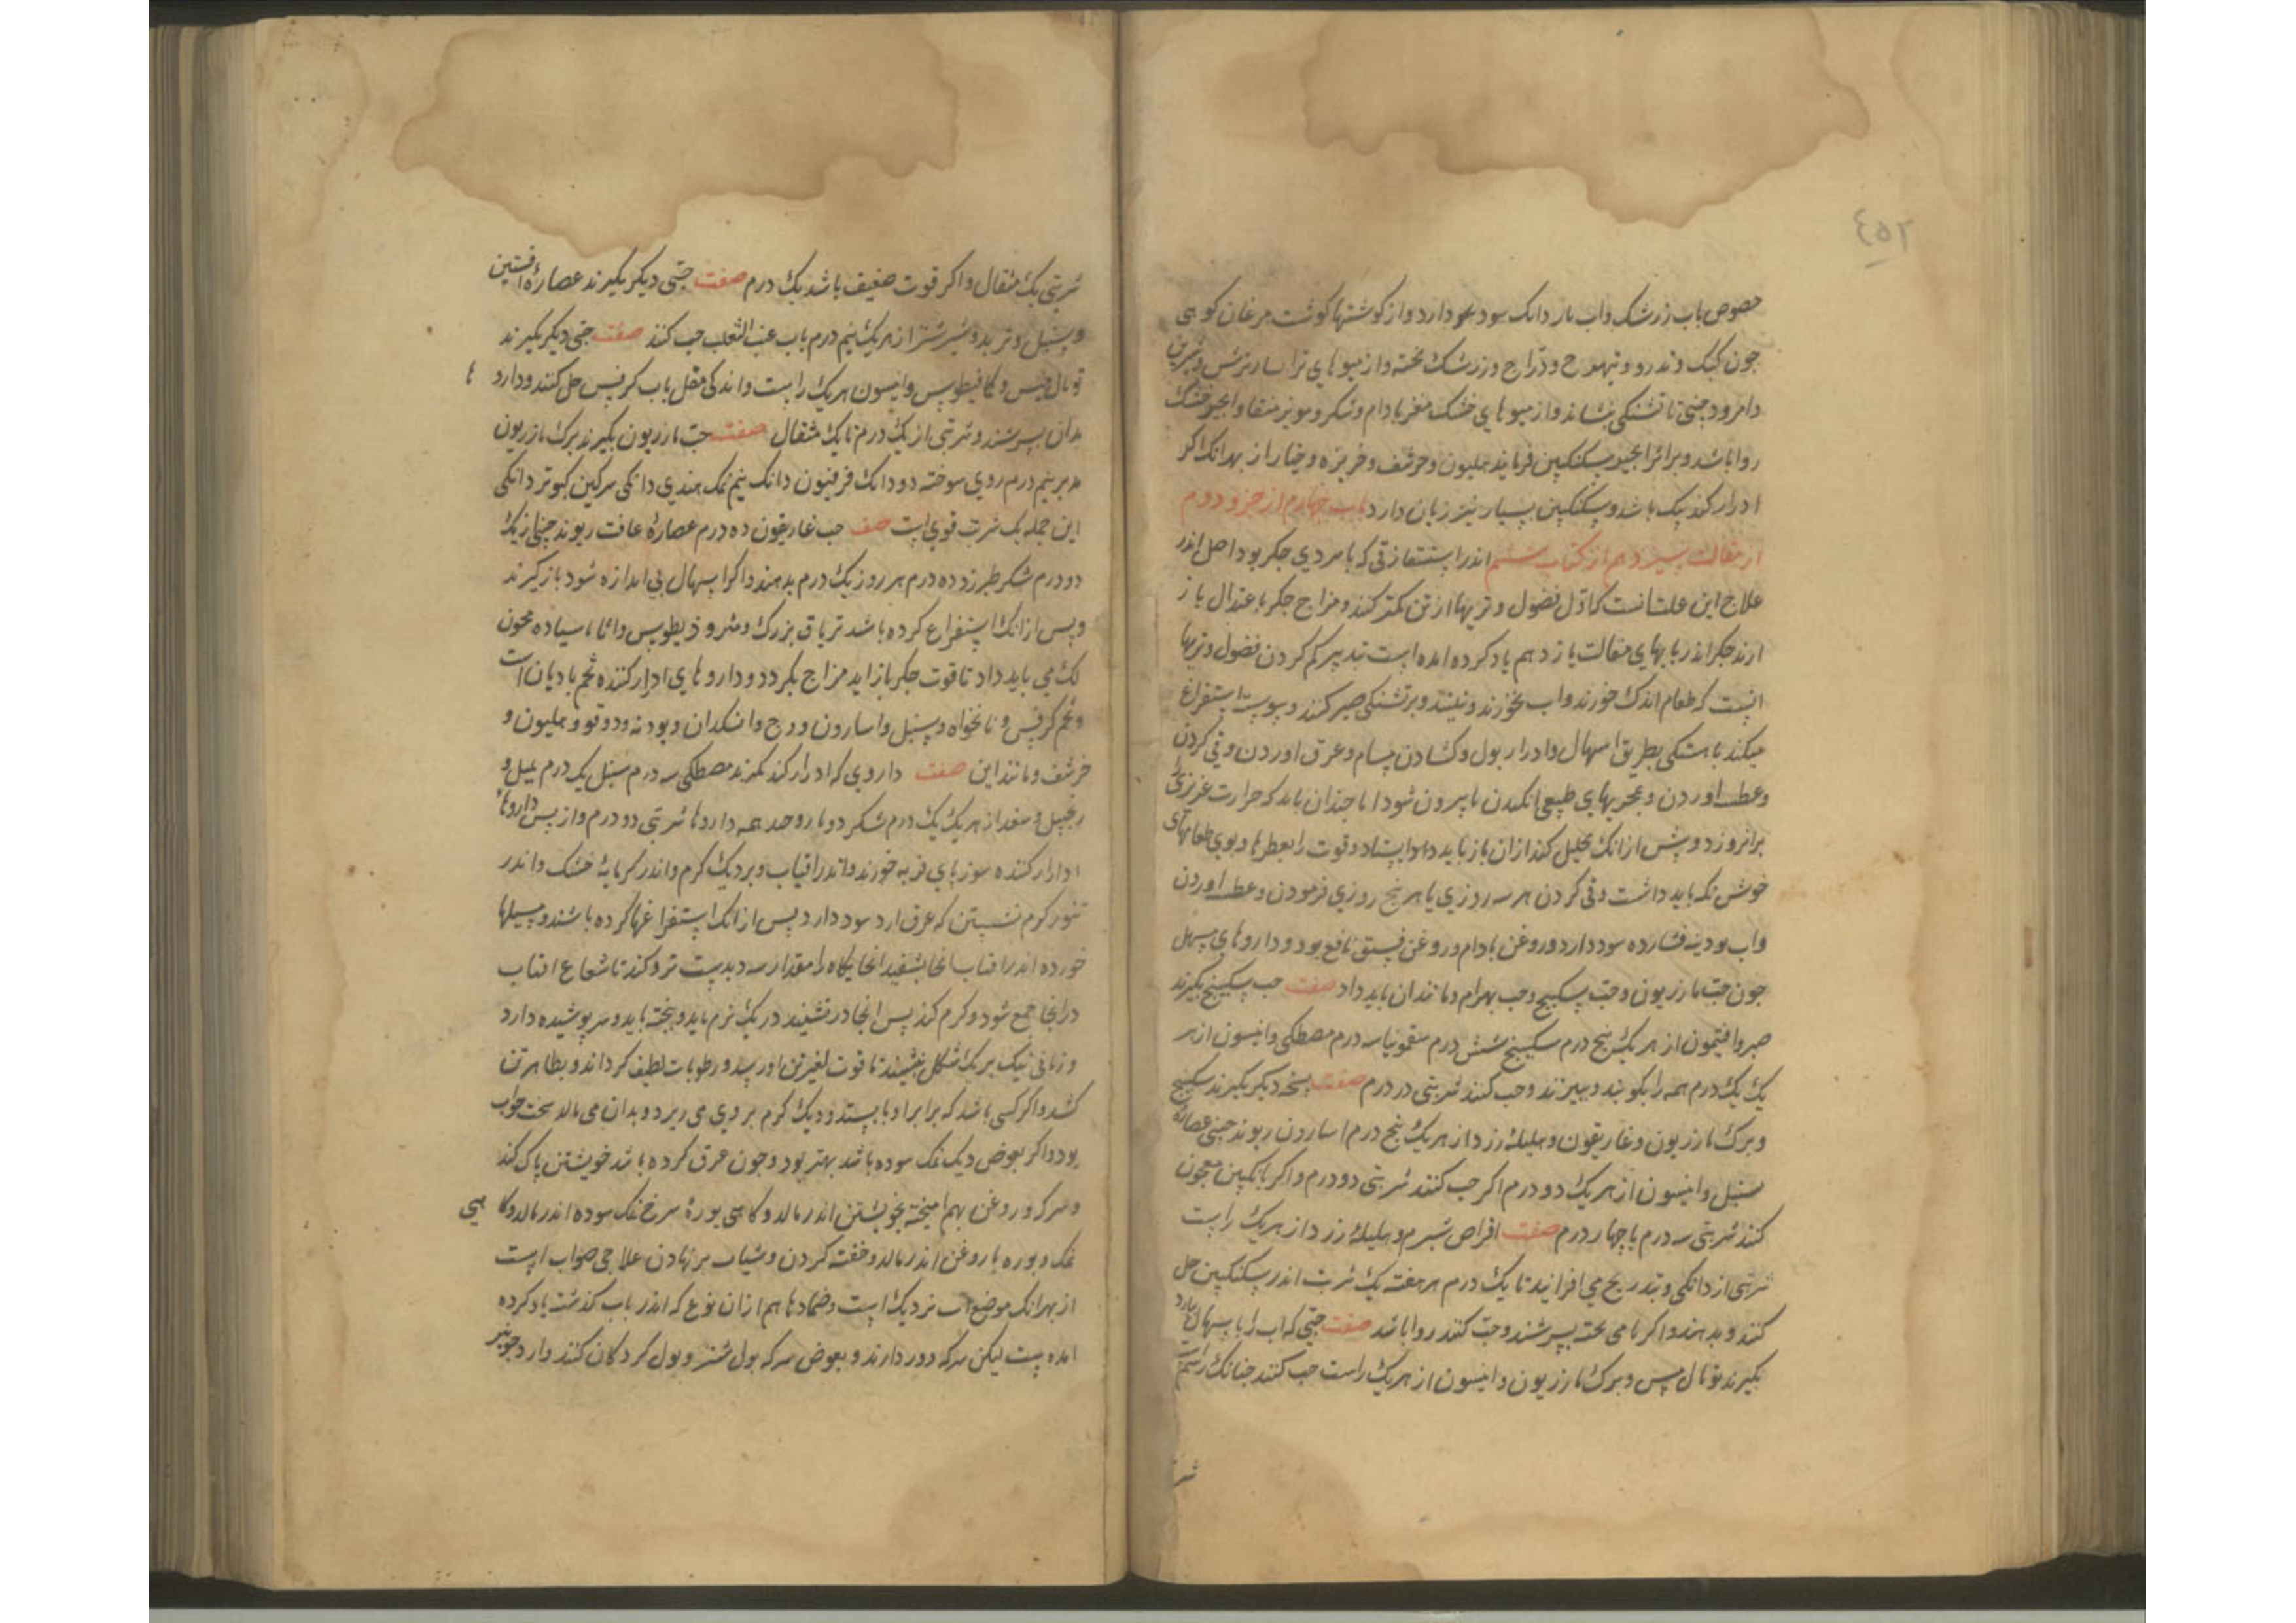 ٤٥٢
حصوص باب زرشک واب ناردانک سود دارد واز کوشتها کوشت مرغان کوهی
جون کبک وتدرو وتیهوج ودراج وزرشک بخته واز میوهای تر اسار ترش وشیرین
وامرود جینی تا تشنکی بنشاند واز میوهای خشک مغز بادام وشکر ومویز منقا وانجیر خشک
روا باشد وبراثر انجیر سکنکبین فرمایند هلیون وحرشف وخربزه وخیار از بهر انک اکر
ادرار کند نیک باشد وسکنکبین بسیار نیز زیان دارد باب جهارم از جزو دوم
از مقالت سیزدهم از کتاب ششم اندر استسقا زقی که با سردی جکر بود اصل اندر
علاج این علت انست که اول فضول وتریها از تن کمتر کنند ومزاج جکر باعتدال باز
ارند جکر اندر بابهای مقالت یازدهم یاد کرده امده است تدبیر کم کردن فضول وتریها
انست که طعام اندک خورند واب نخورند ونبینند وبر تشنکی صبر کنند وپیوسته استفراغ
میکند باهستکی بطریق اسهال وادرار بول وکشادن مسام وعرق اوردن وقی کردن
وعطسه اوردن وبمجریهای طبیعی انکیدن تا بیرون شود اما جندان باید که حرارت غریزی را
برافروزد وپیش از انک تحلیل کند ازان باز باید داد وایستاد وقوت را بعطرها وبوی طعامهای
خوش نکه باید داشت وقی کردن هر سه روزی یا هر پنج روزی فرمودن وعطسه اوردن
واب بودینه فشارده سود دارد وروغن بادام وروغن فستق نافع بود وداروهای مسهل
جون حب مازریون وحب سکبینج وحب بهرام ومانند ان باید داد صفت حب سکبینج بکیرند
صبر وافتیمون از هر یک پنج درم سکبینج شش درم سقمونیا سه درم مصطکی وانیسون از هر
یک یک درم همه را بکوبند وببیزند وحب کنند شربتی دو درم صفت نسخه دیکر بکیرند سکبینج
وبرک مازریون وغاریقون وهلیله زرد از هر یک پنج درم اسارون ریوند جینی عصاره
سنبل وانیسون از هر یک دو درم اکر حب کنند شربتی دو درم واکر بانکبین معجون
کنند شربتی سه درم یا چهار درم صفت اقراص شبرم وهلیله زرد از هر یک راست
شربتی از دانکی وبتدریج می افزایند تا یک درم هر هفته یک شربت اندر سکنکبین حل
کنند وبدهند واکر با می پخته بسرشند وحب کنند روا باشد صفت حبی که اب را باسهال بیارد
بکیرند توبال مس وبرک مازریون وانیسون از هر یک راست حب کنند جنانک رسم است
شر
شربتی یک مثقال واکر قوت ضعیف باشد یک درم صفت حبی دیکر بکیرند عصاره افسنتین
وسنبل وتربد وشیر شتر از هر یک نیم درم باب عنب الثعلب حب کنند صفت حبی دیکر بکیرند
توبال مس وکمافیطوس وانیسون هر یک راست واندکی مقل باب کرفس حل کنند وداروها
بدان بسرشند وشربتی از یک درم تا یک مثقال صفت حب مازریون بکیرند برک مازریون
مدبر نیم درم روی سوخته دو دانک فرفیون دانک نیم نمک هندی دانکی سرکین کبوتر دانکی
این جمله یک شربت قوی است صفت حب غاریقون ده درم عصاره غافت ریوند جینی از یک
دو درم شکر طبرزد ده درم هر روز یک درم بدهند واکر اسهال بی اندازه شود بازکیرند
وپس از انک استفراغ کرده باشد تریاق بزرک ومثرودیطوس واثاناسیا ده معجون
لک می باید داد تا قوت جکر باز اید مزاج بکردد وداروهای ادرار کننده تخم بادیان است
وتخم کرفس ونانخواه وسنبل واسارون ووج وانکدان وبودنه ودوقو وهلیون و
خرشف ومانند این صفت داروی که ادرار کند بکیرند مصطکی سه درم سنبل یک درم
زنجبیل از هر یک یک درم شکر دوبار وحد همه داروها شربتی دو درم واز پس داروهای
ادرار کننده موزهای فربه خورند واندر افتاب وبر ریک کرم واندر کرمابه خشک واندر
تنور کرم نشستن که عرق ارد سود دارد پس از انک استفراغها کرده باشند ومسهلها
خورده اندر افتاب انجا بنشیند انجایکاه را مقدار سه دست تر وکند تا شعاع افتاب
در انجا جمع شود وکرم کند پس انجا در نشیند در یک نرم باید وپخته باید وسر پوشیده دارد
وزمانی نیک بر یک شکل بنشیند تا قوت بغیر تن او رسد ورطوبات لطیف کرداند وبظاهر تن
کشد واکر کسی باشد که برابر او بایستد وریک کرم بر وی می ریزد وبدان می مالد سخت صواب
بود واکر بعوض ریک نمک سوده باشد بهتر بود وجون عرق کرده باشد خویشتن پاک کند
وسرکه وروغن بهم امیخته بخویشتن اندر مالد وکاهی بوره سرخ نمک سوده اندر مالد وکاهی
نمک وبوره با روغن اندر مالد وحقنه کردن وشیاف برنهادن علاجی صواب است
از بهر انک موضع اب نزدیک است وضمادها هم ازان نوع که اندر باب کذشته یاد کرده
امده است لیکن سرکه دور دارند وبعوض سرکه بول شتر وبول کودکان کنند وارد جو نیز